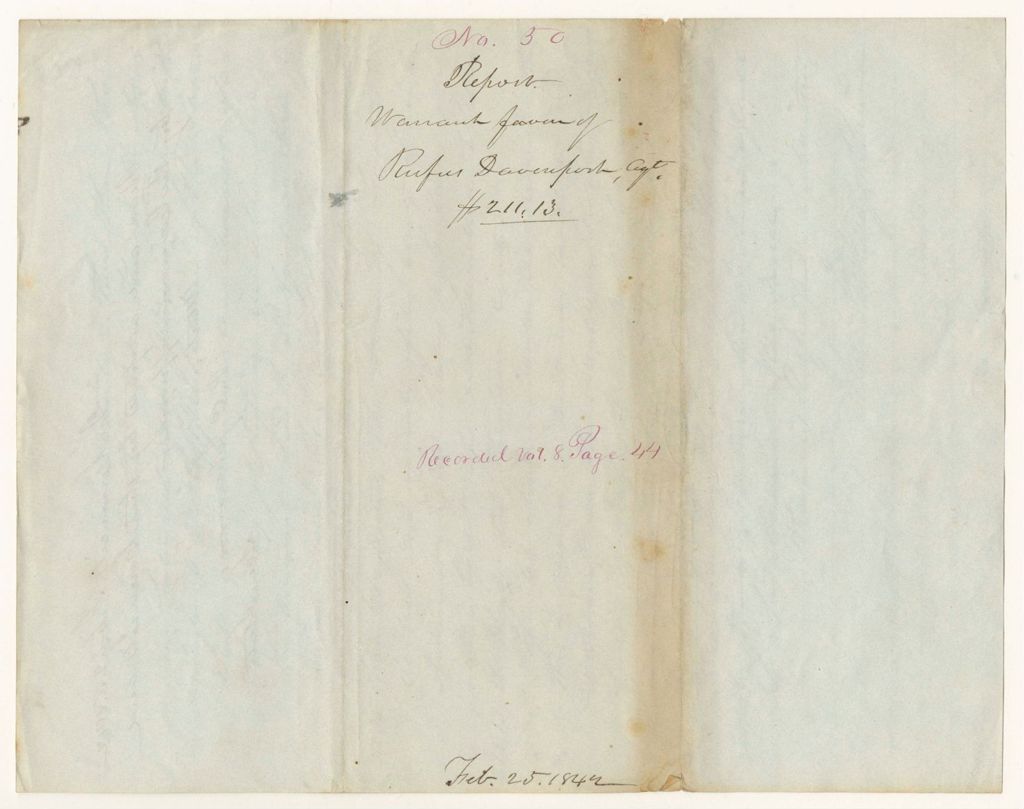 No. 50
Report
Warrant favour of
Rufus Davenport, Agt.
$211.13.
Recorded Vol. 8. Page. 44
Feb. 25. 1842